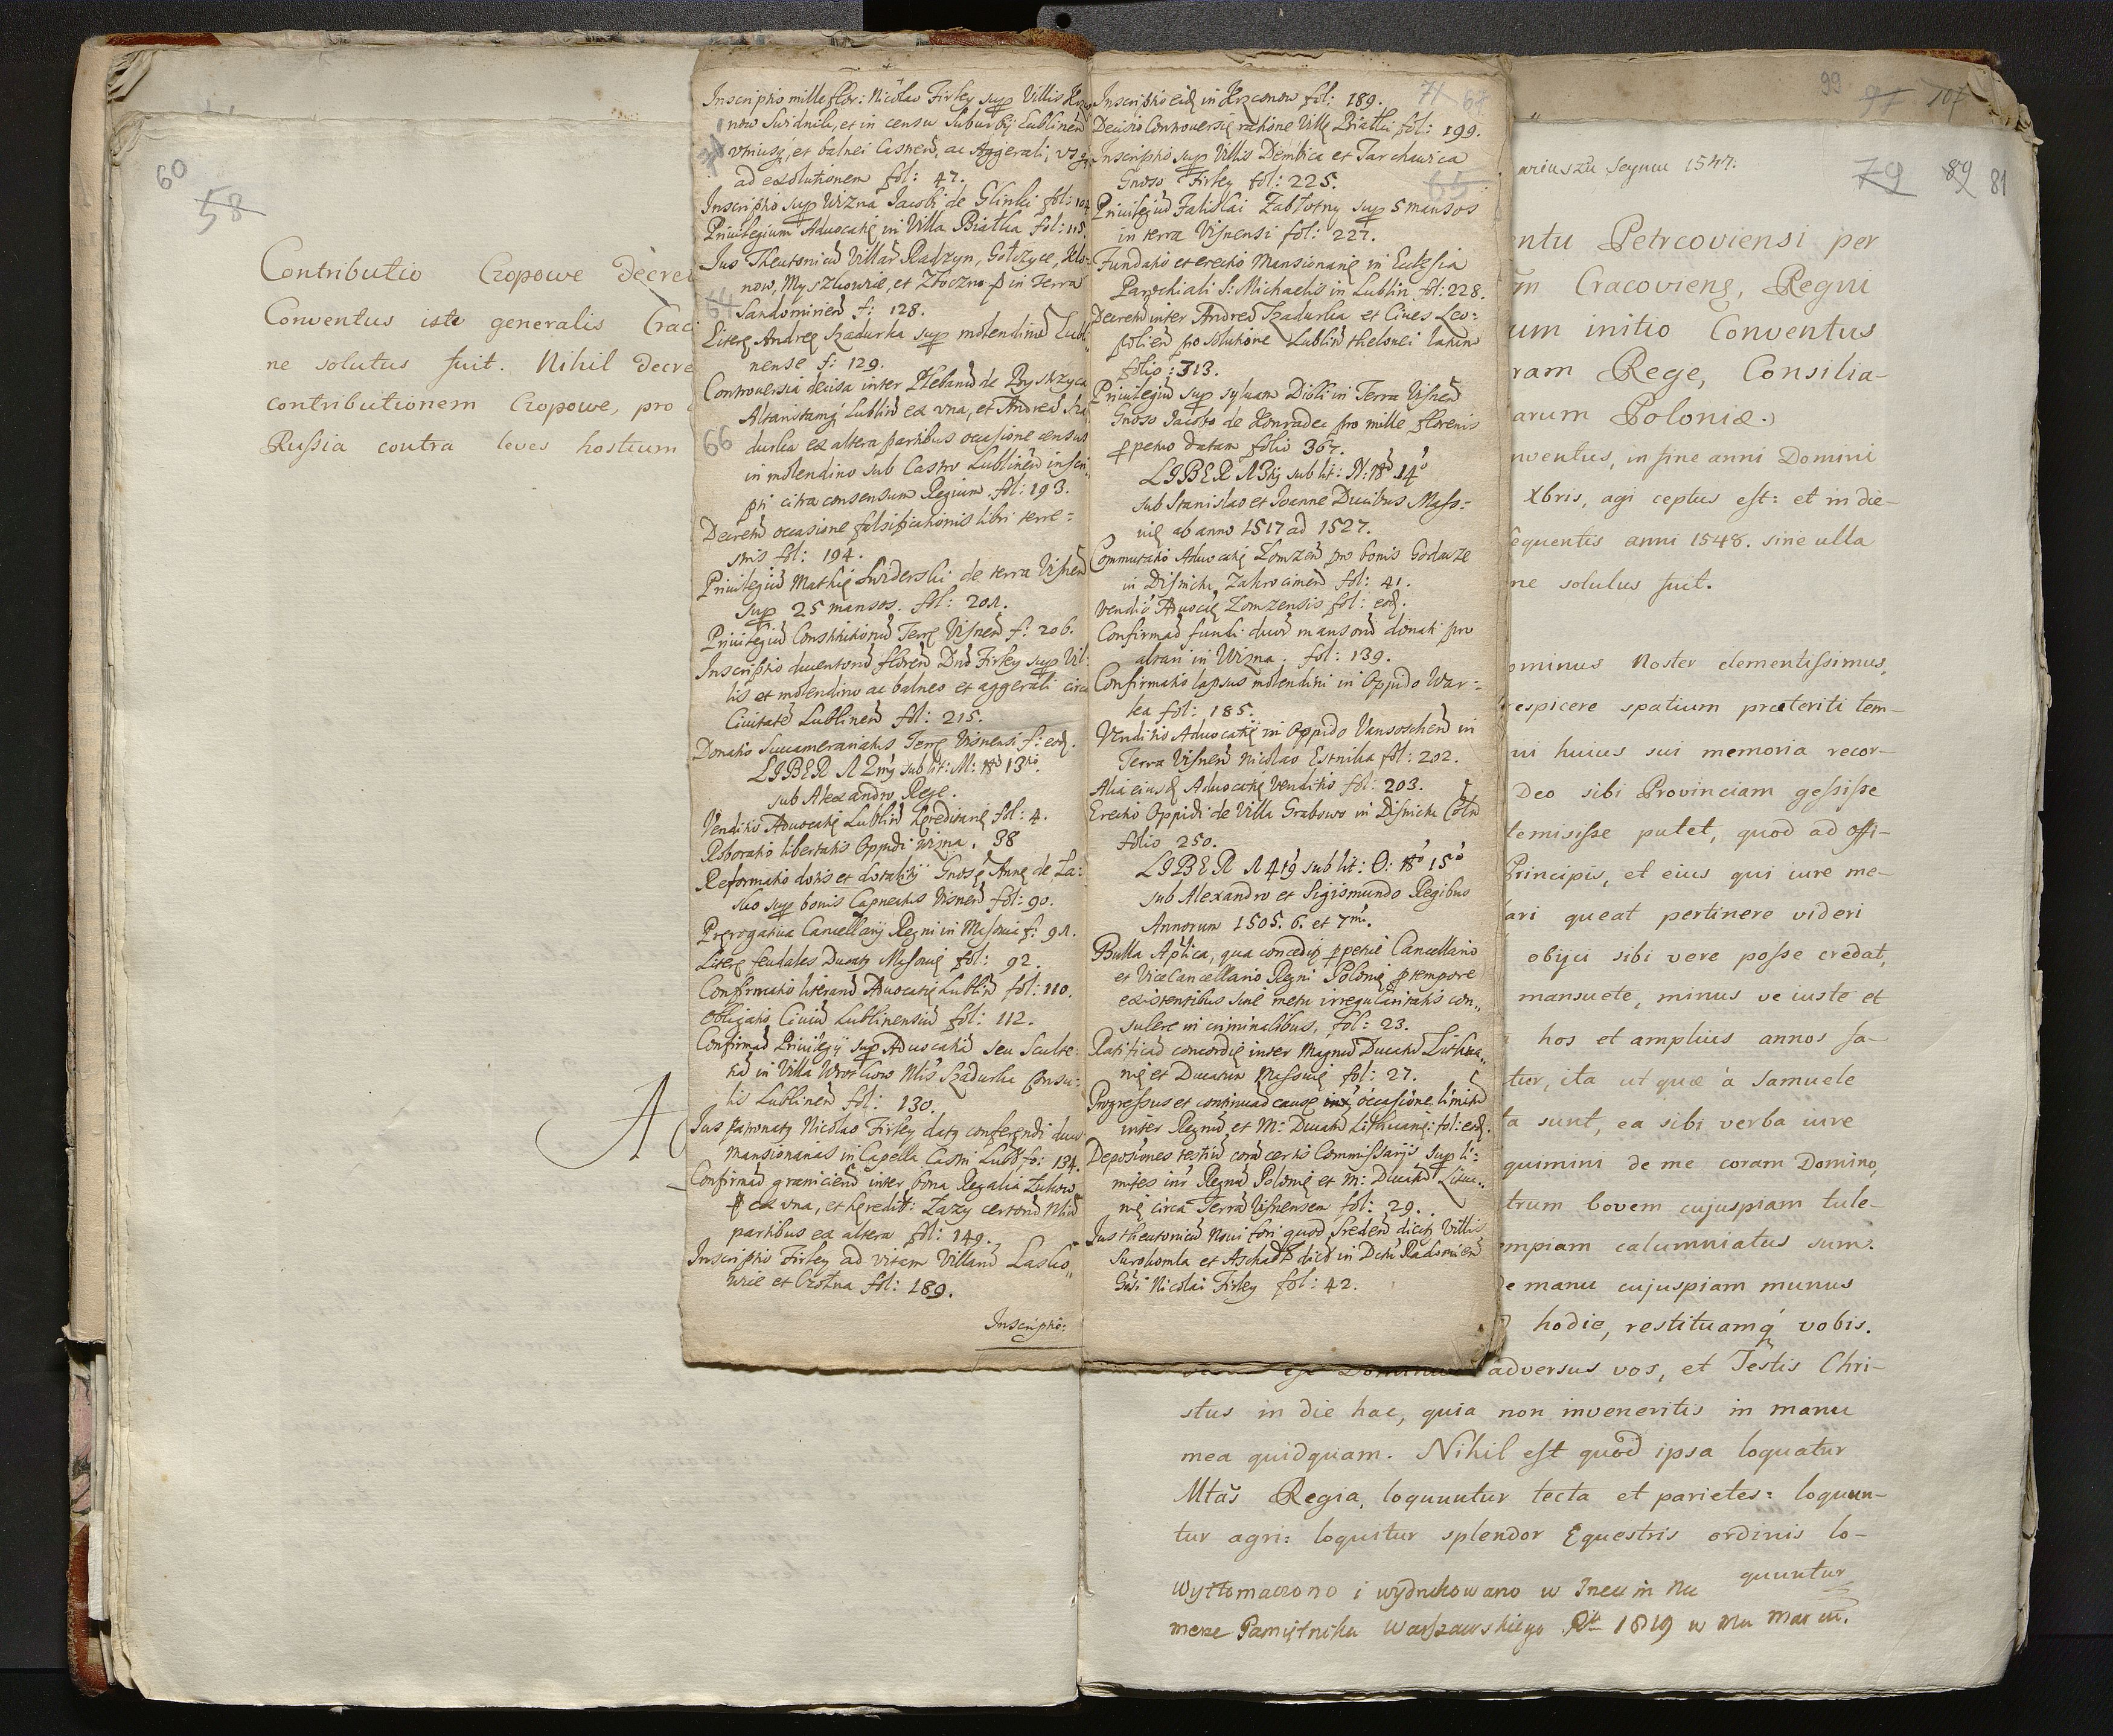 60
58
Contributio Czopowe Decre
Conventus iste generalis Crac
ne solutus fuit. Nihil decre
contributionem Czopowe, pro
Russia contra leves hostium
Inscriptio mille flor: Nicolao Firley sup Villis Krzo
now Swidnik, et in censu Suburbij Lublineñ
vniusq, et balnei Castreñ, ac Aggerali, vsq
ad exolutionem fol: 47.
Inscriptio sup Wizna Jacobi de Glinki fol: 104
Priuilegium Aduocatię in Villa Białka fol: 115.
Jus Theutonicũ Villar Radzyn, Gołczyce, Klo-
now, Myszkowice, et Zboczno in Terra
64 Sandomirieñ f: 128.
Literę Andreę Szadurka sup molendinũ Lubli
nense f: 129.
Controuersia decisa inter Plebanũ de Bystrzyca
Altaristamq Lubliñ ex vna, et Andreã Sza
66 durka ex altera partibus occasione census
in molendino sub Castro Lublineñ inscri
pti citra consensum Regium. fol: 193.
Decretũ occasione falsificationis libri terre=
stris fol: 194.
Priuilegiũ Mathię Swiderski de terra Visneñ
sup 25 mansos. fol: 201.
Priuilegiũ Constitutionũ Terrę Visneñ f: 206.
Inscriptio ducentorũ floreñ Dnõ Firley sup Vil-
lis et molendino ac balneo et aggerali circa
Ciuitatẽ Lublineñ fol: 215.
Donatio Succamerariatus Terrę Visnensi f: eod.
LIBER A 2mg sub lit: M: No 13tio.
sub Alexandro Rege.
Venditio Aduocatię Lubliñ hęreditarię fol: 4.
Roboratio libertatis Oppidi Wizna. 38
Reformatio dotis et dotalitij Gnosę Annę de La=
sko sup bonis Capneatus Visneñ fol: 90.
Pręrogatiua Cancellarij Regni in Masouia f: 91.
Literę feudales Ducatg Masouię fol: 92.
Confirmatio literarũ Aduocatię Lubliñ fol: 110.
Obligatio Ciuiũ Lublinensiũ fol: 112.
Confirmaõ Priuilegij sup Aduocatiã seu Sculte=
tiã in Villa Wrotkow Nlis Szadurka Consu=
lis Lublineñ fol: 130.
Jus patronatg Nicolao Firley datg conferendi duas
mansionarias in Capella Castri Lubliñ fo: 134.
Confirmaõ granicierũ inter bona Regalia Lukow
ex vna, et hęredit: Zazy certorũ Nliũ
partibus ex altera fol: 149.
Inscriptio Firley ad vitam Villarũ Lasko„
wie et Crotna fol: 189.
Inscriptio:
71 67
Inscriptio eid in Krzconow fol: 189.
Decisio Controuersię ratione Villę Białki fol: 199.
Inscriptio sup Villis Dembica et Tarchawica
Gnoso Firley fol: 225.
65
Priuilegiũ Falislai Zabłotny sup 5 mansos
in terra Visnensi fol: 227.
Fundatio et erectio Mansionarię in Ecclesia
Parochiali S: Michaelis in Lublin fol: 228.
Decretũ inter Andreã Szadurka et Ciues Leo=
polieñ pro solutione Lubliñ thelonei latum
folio: 313.
Priuilegiũ sup syluam Dibli in Terra Visneñ
Gnoso Jacobo de Konradec pro mille florenis
perpetuo datam folio 367.
LIBER A 3tij sub lit: N: No 14o
sub Stanislao et Joanne Ducibus Maso=
uię ab anno 1517 ad 1527.
Commutatio Aduocatię Lomzeñ pro bonis Gordarze
in Districtu Zakrocimeñ fol: 41.
Venditio Aduocię Lomzensis fol: eod.
Confirmaõ fundi duor mansorũ donati pro
altari in Wizna. fol: 139.
Confirmatio lapsus molendini in Oppido War=
ka fol: 185.
Venditio Aduocatię in Oppido Vansoscheñ in
Terra Visneñ Nicolao Estnika fol: 202.
Alia eiusd Aduocatię Venditio fol: 203.
Erectio Oppidi de Villa Grabowo in Districtu Colñ
folio 250.
LIBER A 4tg sub lit: O: No 15o
sub Alexandro et Sigismundo Regibus
Annorum 1505. 6. et 7mi.
Bulla Aplica, qua concedit perpetuę Cancellario
et ViceCancellario Regni Polonię p tempore
existentibus sine metu irregularitatis con„
sulere in criminalibus, fol: 23.
Ratificaõ concordię inter Magnũ Ducatũ Lithua„
nię et Ducatum Masouię fol: 27.
Progressus et continuaõ causę occasione limitũ
inter Regnũ et M: Ducatũ Lithuanię: fol: eod.
Depositiones testiũ corã certis Commissarijs sup li=
mites intr Regnũ Polonię et M: Ducatũ Litua„
nię circa Terrã Visnensem fol: 29.
Jus theutonicũ noui fori quod Sredeñ dicitg Villis
Surokomla et Aschad dict in Dctu Radomieñ
Gnsi Nicolai Firley fol: 42.
99 97 107
ariuszu Seymu 1547.
79 89 81
ntu Petrcoviensi per
m Cracovieng, Regni
um initio Conventus
ram Rege, Consilia-
arum Poloniæ.
nventus, in fine anni Domini
Xbris, agi ceptus est: et in die-
equentis anni 1548. sine ulla
ne solutus fuit.
ominus Noster clementissimus,
respicere spatium præteriti tem-
ui huius sui memoria recor-
Deo sibi Provinciam gessisse
temisisse putet, quod ad offi-
Principis, et eius qui iure me-
ari queat pertinere videri
obijci sibi vere posse credat,
mansuete, minus ve iuste et
hos et amplius annos fa-
tur, ita ut quæ à Samuele
ta sunt, ea sibi verba iure
quimini de me coram Domino,
trum bovem cujuspiam tule-
mpiam calumniatus sum.
e manu cujuspiam munus
hodie, restituamq vobis.
adversus vos, et Testis Chri-
stus in die hac, quia non inveneritis in manu
mea quidquam. Nihil est quod ipsa loquatur
Mtãs Regia, loquuntur tecta et parietes: loquun-
tur agri: loquitur splendor Equestris ordinis lo-
quuntur
Wytłomaczono i wydrukowano w Trzecim Nu
merze Pamiętnika Warszawskiego Ru 1819 w Mcu Marcu.